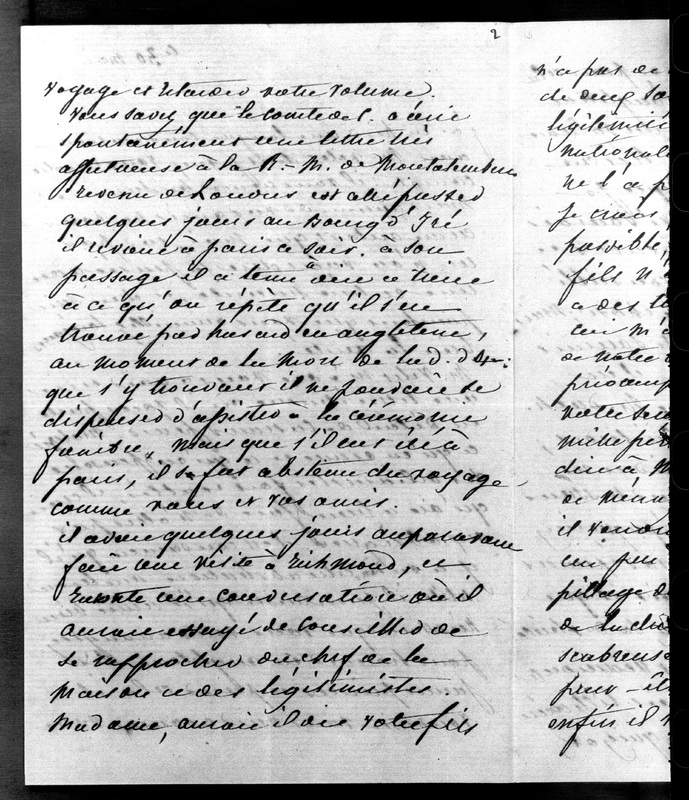 2
voyage et retarder votre volume.
Vous savez que le comte de C. a écrit
spontanément une lettre très
affectueuse à la R. - M. de Montalembert
revenu de Londres est allé passer
quelques jours au bourg d'Iré
il revient à paris ce soir. à son
passage il a tenu à dire
à ce qu'on répète qu'il s'est
trouvé par hasard en angleterre,
au moment de la mort de la d. d'Or:
que s'y trouvant il ne pouvait se
dispenser d'assister à la cérémonie
funèbre, mais que s'il eut été à
paris, il se fut abstenu du voyage
comme vous et vos amis.
il avait quelques jours auparavant
fait une visite à Richmond, et
raconte une conversation où il
aurait essayé de conseiller de
se rapprocher du chef de la
maison et des légitimistes
Madame, aurait il dit votre fils
n'a pas de
de deux
légitimis
national
ne l'a p
je crois
possible,
fils n'
a des
qui m'a
de notre
préoccup
votre
mille
dire à M
de
il vend
un peu
pillage de
de la
scabreuse
peur
enfin il